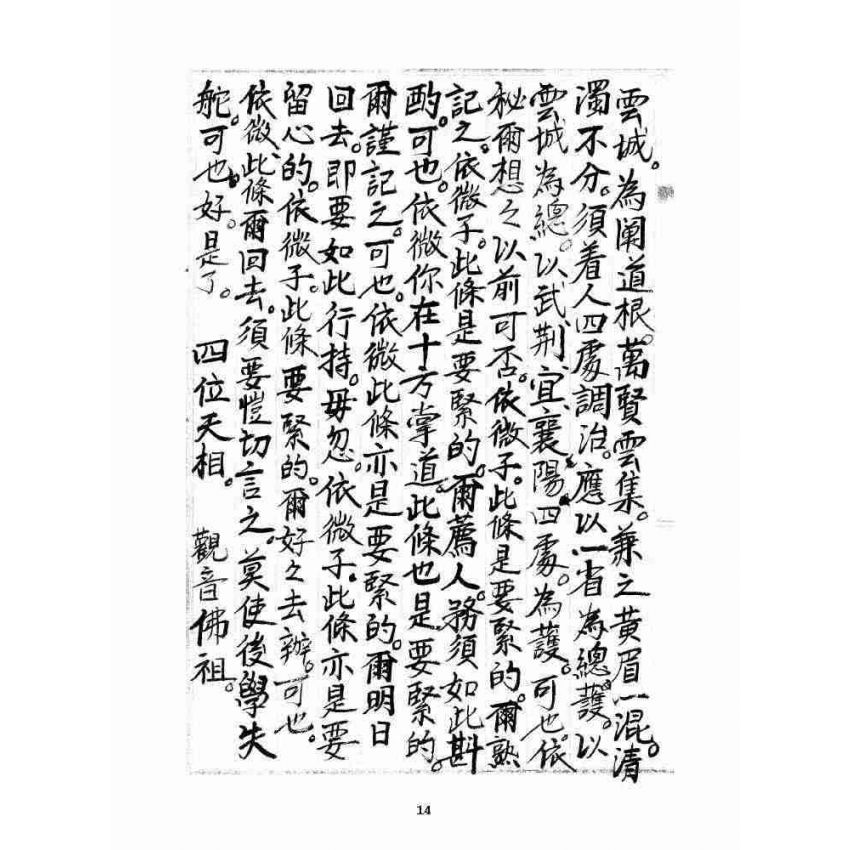 雲城。為闡道根。萬賢雲集。兼之黃眉一混。清
濁不分。須着人四處調治。應以一省為總護。以
雲城為總。以武、荆、宜、襄陽、四處。為護。可也。依
秘爾想之以前可否。依微子。此條是要緊的。爾熟
記之。依微子。此條是要緊的。爾薦人。務須如此斟
酌。可也。依微你在十方掌道。此條也是要緊的。
爾謹記之。可也。依微此條亦是要緊的。爾明日
回去。即要如此行持。毋忽。依微子。此條亦是要
留心的。依微子。此條要緊的。爾好々去辦。可也。
依微、此條爾回去。須要愷切言之。莫使後學失
舵。可也。好。是了。 四位天相。 觀音佛祖。
14